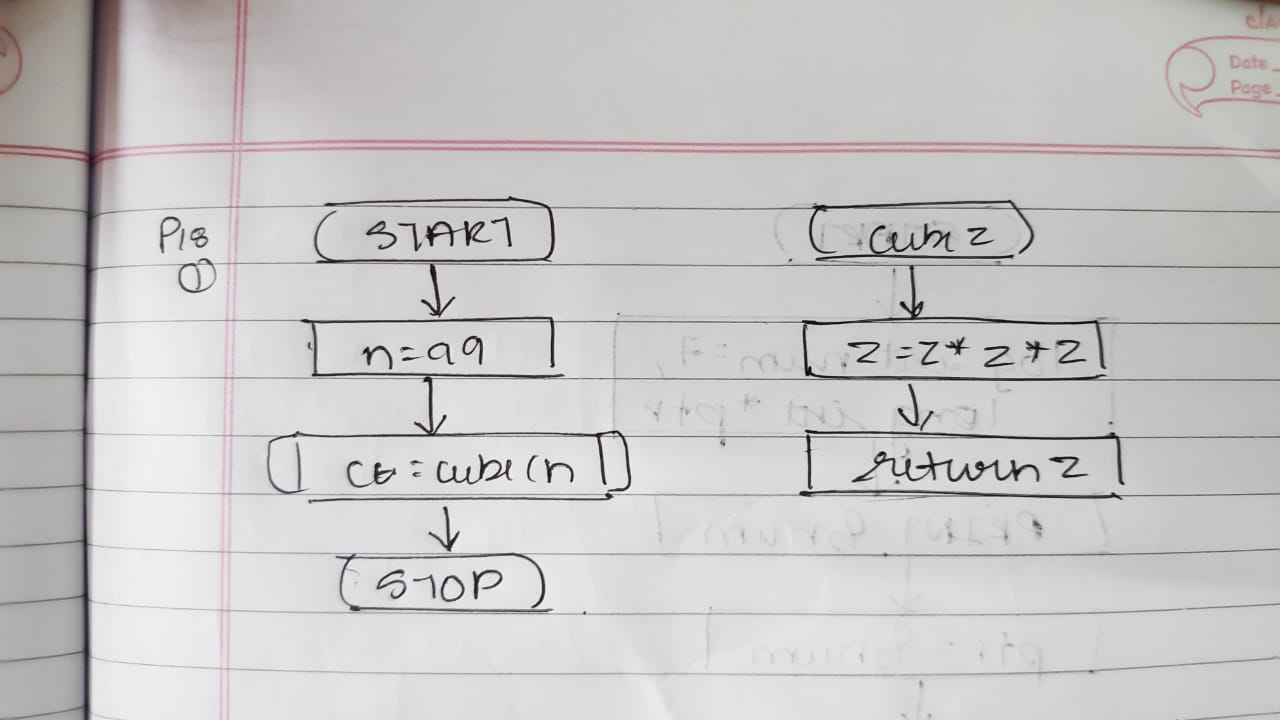 clA
Date
Page
P18
①
START
n=99
CG=cube(n
STOP
cube z
z=z*z*z
return z